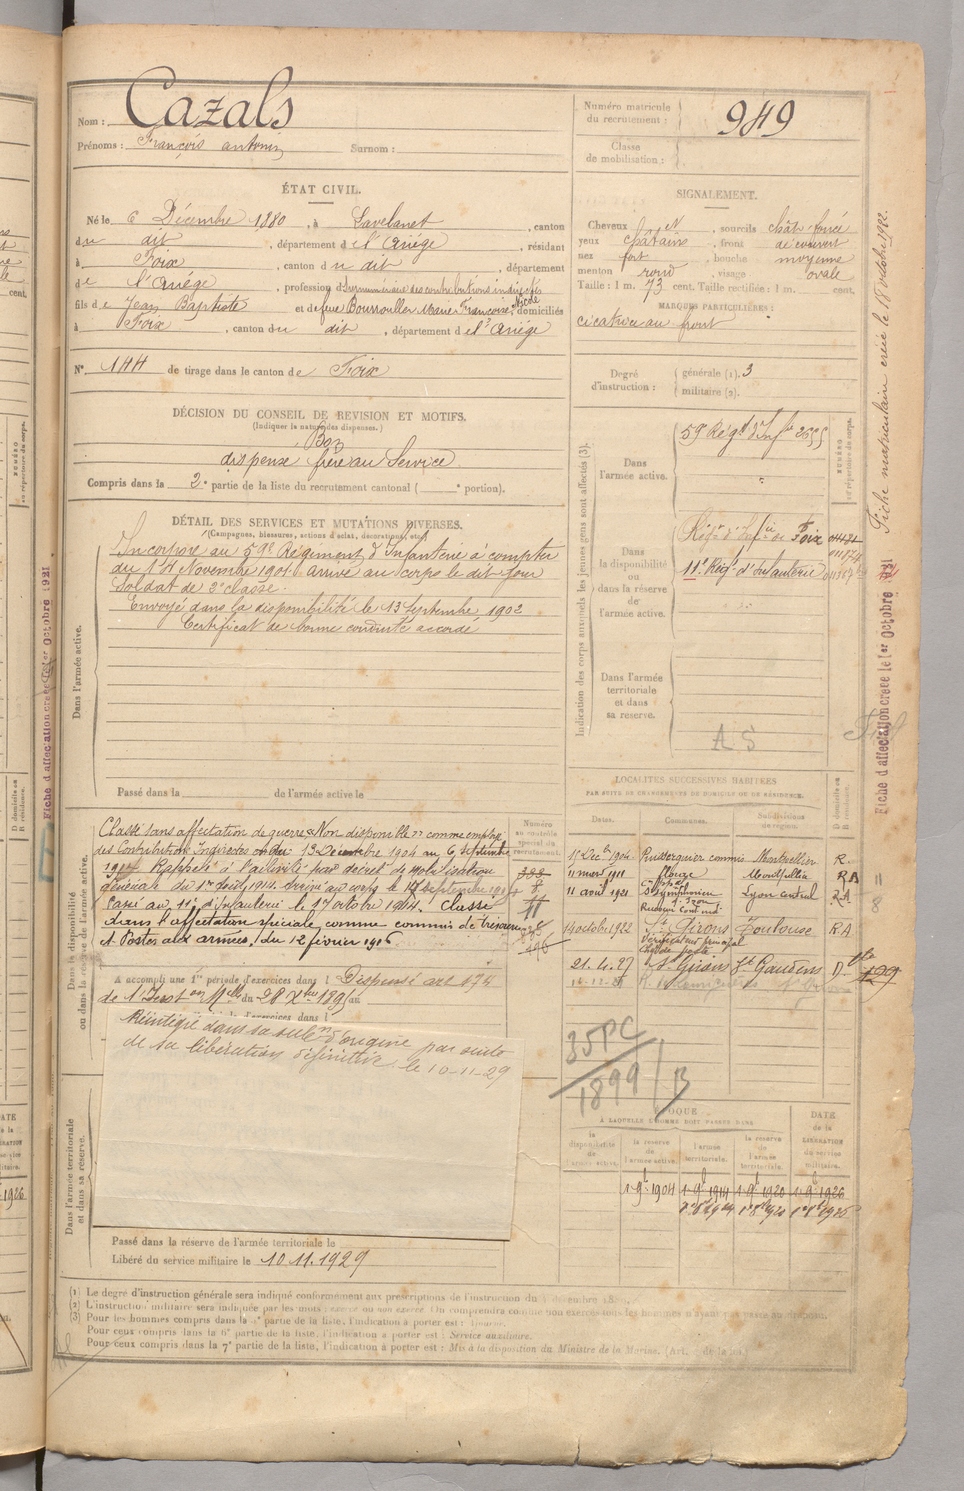 Nom : Cazals
Prénoms : François antonin Surnom :
Numéro matricule du recrutement : 949
Classe de mobilisation :
ÉTAT CIVIL.
Né le 6 Décembre 1880, à Lavelanet, canton
du dit, département de l'Ariège, résidant
à Foix, canton du dit, département
de l'Ariège, profession d Surnuméraire des contributions indirectes
fils de Jean Baptiste et de feue Bourrouller Marie Françoise, Nicole domiciliés
à Foix, canton du dit, département de l'Ariège
N° 144 de tirage dans le canton de Foix
SIGNALEMENT.
Cheveux et, sourcils chât. foncé
yeux châtains, front découvert
nez fort, bouche moyenne
menton rond, visage ovale
Taille : 1 m. 73 cent. Taille rectifiée : 1 m. cent.
MARQUES PARTICULIÈRES :
cicatrice au front
Degré d'instruction : générale (1). 3
militaire (2).
DÉCISION DU CONSEIL DE REVISION ET MOTIFS.
(Indiquer la nature des dispenses.)
Bon
dispensé frère au Service
Compris dans la 2e partie de la liste du recrutement cantonal ( e portion).
DÉTAIL DES SERVICES ET MUTATIONS DIVERSES.
(Campagnes, blessures, actions d'éclat, décorations, etc.)
Dans l'armée active.
Incorporé au 59e Régiment d'Infanterie à compter
du 14 Novembre 1901 arrivé au corps le dit jour
soldat de 2e classe.
Envoyé dans la disponibilité le 13 Septembre 1902
Certificat de bonne conduite accordé
Passé dans la de l'armée active le
Indication des corps auxquels les jeunes gens sont affectés (3).
NUMÉRO au répertoire du corps.
Dans l'armée active.
59e Régt d'Infie 2655
Dans la disponibilité ou dans la réserve de l'armée active.
Régt d'Infie de Foix
11e Régt d'Infanterie
Dans l'armée territoriale et dans sa reserve.
AS
Fiche matriculaire créée le 18 octobre 1922.
Fiche d'affectation créée le 1er Octobre 1921
Fiche d'affectation créée le 1er Octobre 1921
Dans la disponibilité ou dans la réserve de l'armée active.
Numéro au contrôle spécial du recrutement.
Classé sans affectation de guerre "Non disponible" comme employé
des Contributions Indirectes du 13 Décembre 1904 au 6 septembre
Rappelé à l'activité par décret de mobilisation
générale du 1er août 1914. Arrivé au corps le septembre 1914
Passé au 11e d'infanterie le 1 octobre 1914. Classé
dans l'affectation spéciale comme commis de Trésorerie
& Postes aux armées, du 12 février 1916
A accompli une 1re période d'exercices dans l Dispensé art. 174
de l'Inston Mlle du 28 Xbre 1895 au
Réintégré dans sa subdon d'origine par suite
de sa libération définitive le 10-11-29
Dans l'armée territoriale et dans sa reserve.
Passé dans la réserve de l'armée territoriale le
Libéré du service militaire le 10.11.1929
LOCALITÉS SUCCESSIVES HABITÉES
PAR SUITE DE CHANGEMENTS DE DOMICILE OU DE RÉSIDENCE.
Dates. Communes. Subdivisions de région. D domicile ou R résidence.
15 Déc. 1904 Puisserguier commis Montpellier R.
11 mars 1911 Montpellier RA
11 août 1921 St Symphorien Lyon central RA
14 octobre 1922 St Girons Toulouse RA
Vérificateur principal
21.4.27 St Girons St Gaudens D.
35 PC
1899 / B
ÉPOQUE
À LAQUELLE L'HOMME DOIT PASSER DANS
la disponibilité de l'armée active. la reserve de l'armée active. l'armée territoriale. la reserve de l'armée territoriale. DATE de la LIBÉRATION du service militaire.
1-9bre 1904 1-9bre 1914 1-9bre 1920 1-9bre 1926
(1) Le degré d'instruction générale sera indiqué conformément aux prescriptions de l'instruction du
(2) L'instruction militaire sera indiquée par les mots : exercé ou non exercé. On comprendra comme non exercés tous les hommes n'ayant pas passé au drapeau.
(3) Pour les hommes compris dans la partie de la liste, l'indication à porter est :
Pour ceux compris dans la 6e partie de la liste, l'indication à porter est : Service auxiliaire.
Pour ceux compris dans la 7e partie de la liste, l'indication à porter est : Mis à la disposition du Ministre de la Marine.